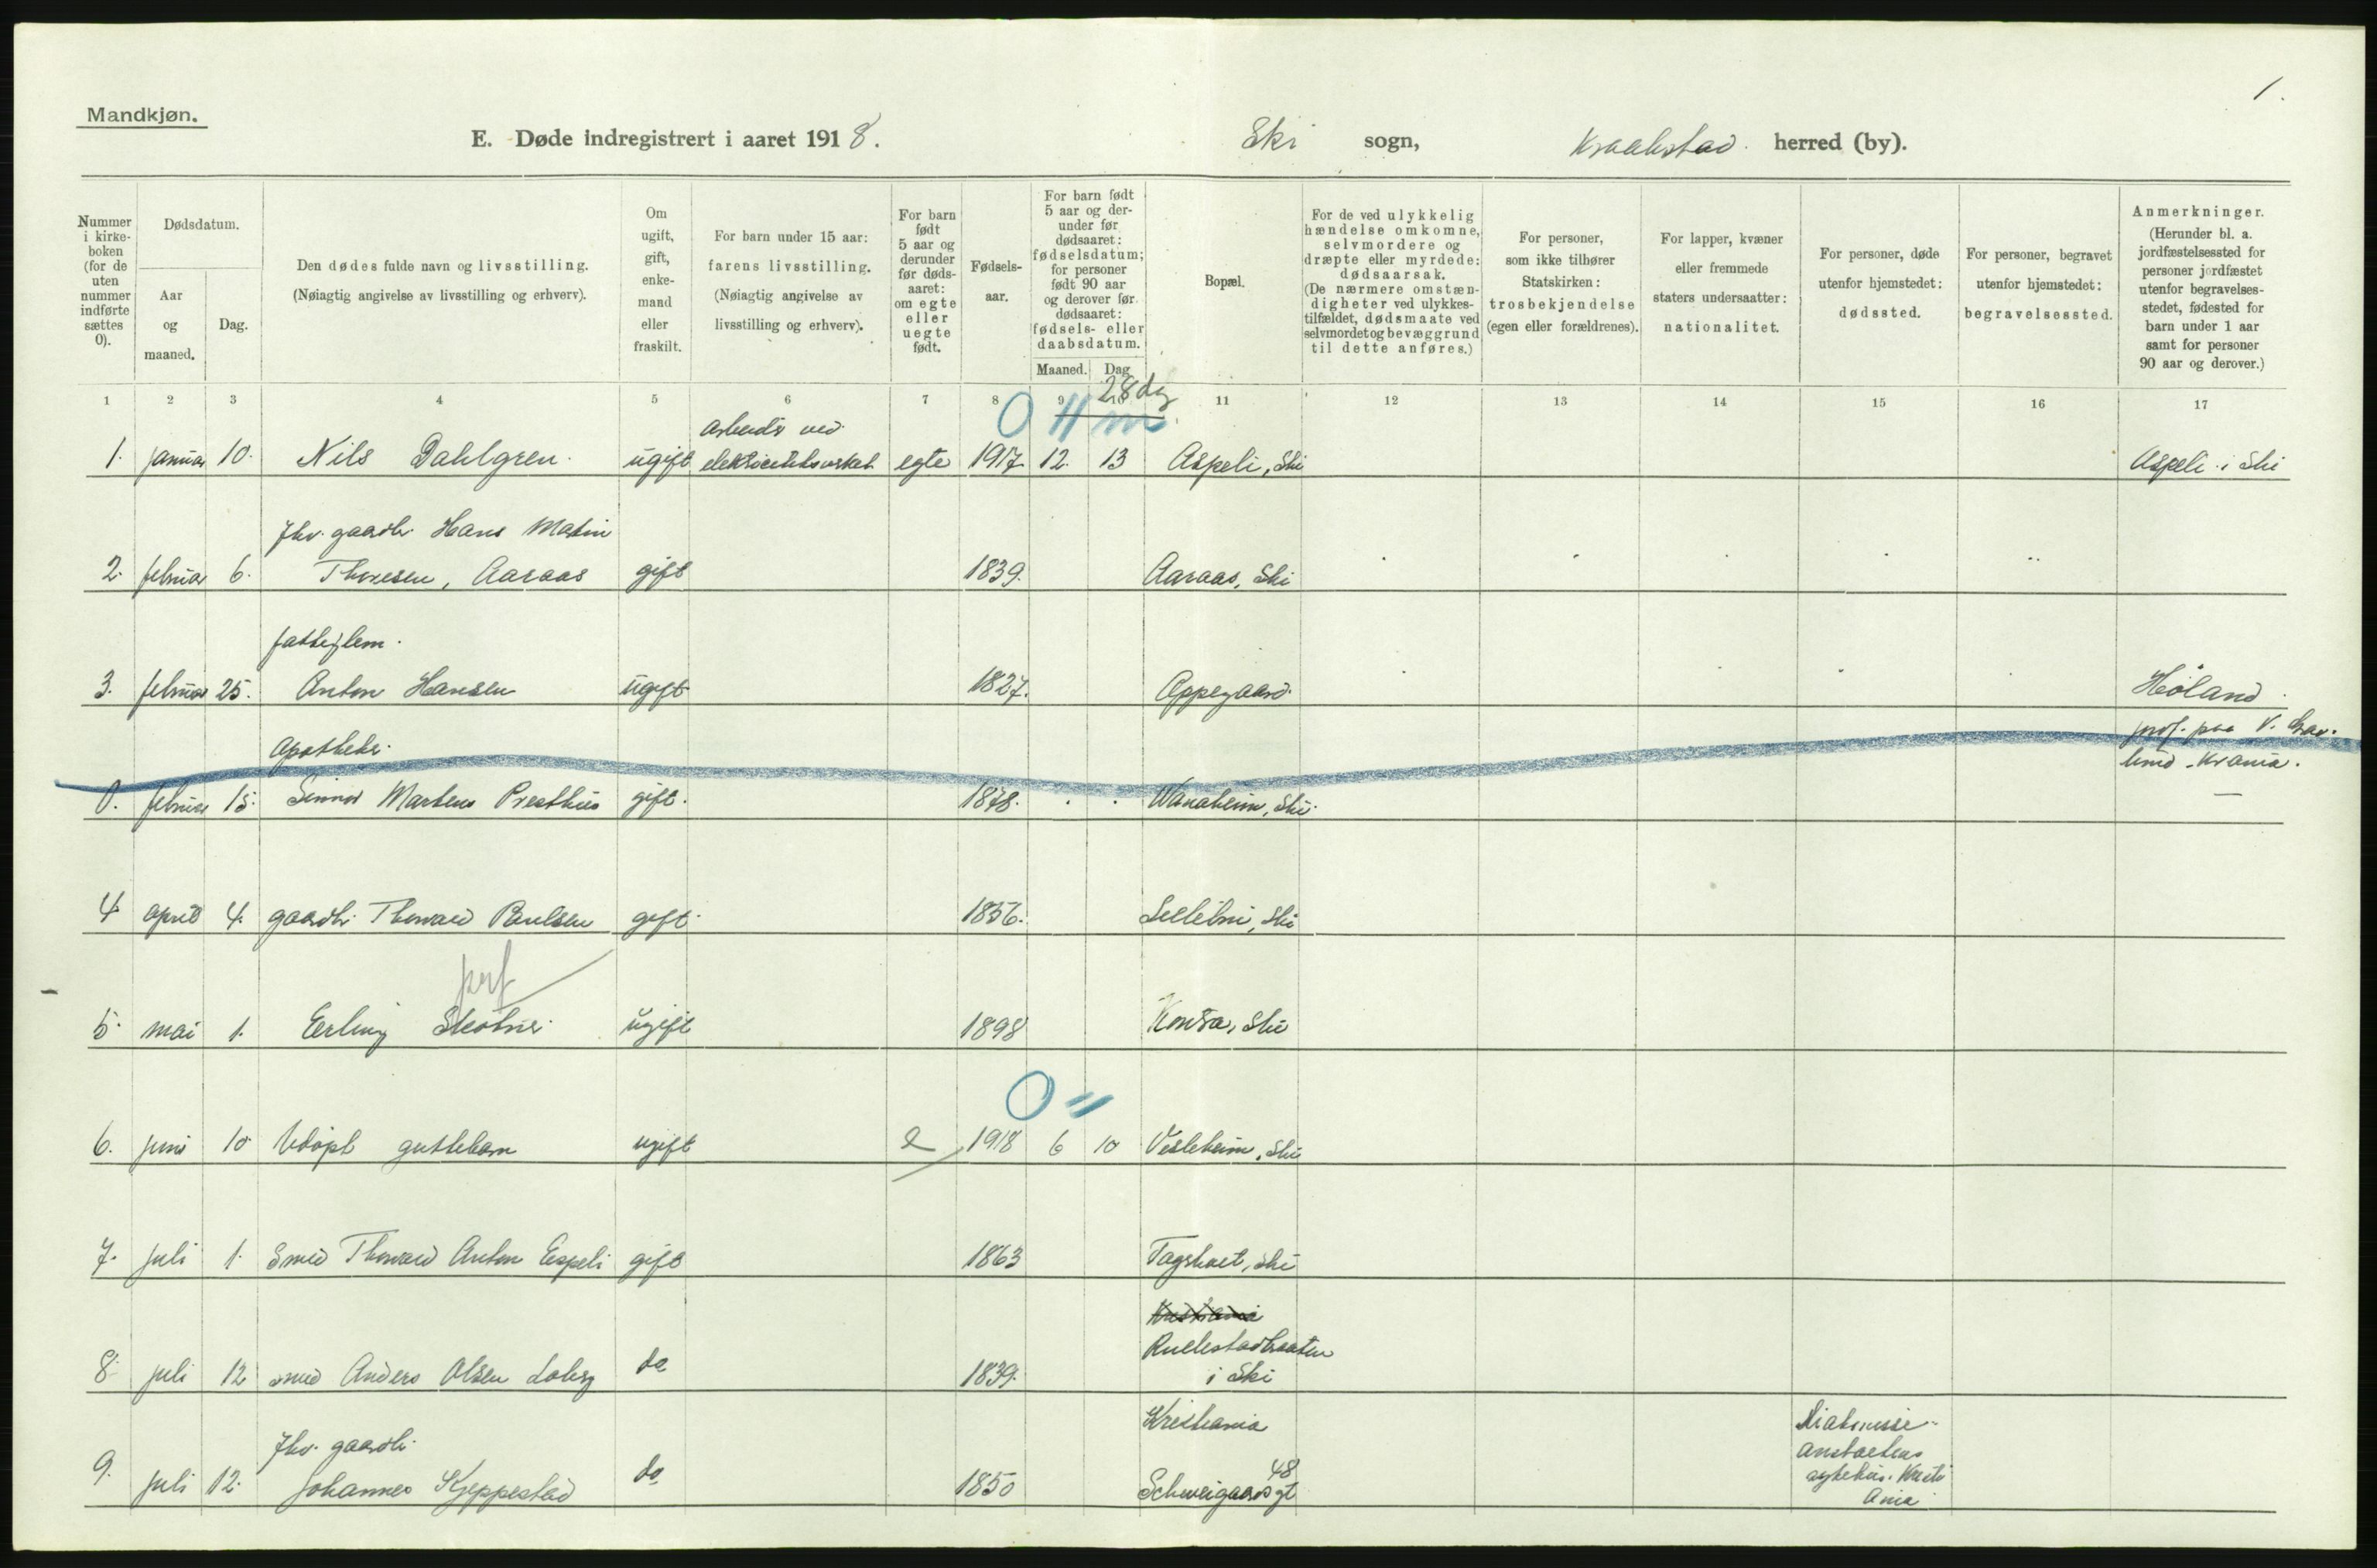 1.
Mandkjøn.
E. Døde indregistrert i aaret 1918.
Ski sogn, Kraakstad herred (by).
Nummer i kirke-boken (for de uten nummer indførte sættes 0).
Dødsdatum.
Aar og maaned.
Dag.
Den dødes fulde navn og livsstilling.
(Nøiagtig angivelse av livsstilling og erhverv).
Om ugift, gift, enke-mand eller fraskilt.
For barn under 15 aar: farens livsstilling.
(Nøiagtig angivelse av livsstilling og erhverv).
For barn født 5 aar og derunder før døds-aaret: om egte eller uegte født.
Fødsels-aar.
For barn født 5 aar og der-under før dødsaaret: fødselsdatum; for personer født 90 aar og derover før dødsaaret: fødsels- eller daabsdatum.
Maaned. Dag
Bopæl.
For de ved ulykkelig hændelse omkomne, selvmordere og dræpte eller myrdede: dødsaarsak.
(De nærmere omstæn-digheter ved ulykkes-tilfældet, dødsmaate ved selvmordet og bevæggrund til dette anføres.)
For personer, som ikke tilhører Statskirken: trosbekjendelse (egen eller forældrenes).
For lapper, kvæner eller fremmede staters undersaatter: nationalitet.
For personer, døde utenfor hjemstedet: dødssted.
For personer, begravet utenfor hjemstedet: begravelsessted.
Anmerkninger.
(Herunder bl. a. jordfæstelsessted for personer jordfæstet utenfor begravelses-stedet, fødested for barn under 1 aar samt for personer 90 aar og derover.)
1 2 3 4 5 6 7 8 9 10 11 12 13 14 15 16 17
0 11 m 28 dg
arbeider ved
1. januar 10. Nils Dahlgren. ugift elektricitetsverket egte 1917 12. 13 Aspeli, Ski Aspeli i Ski
Fhv. gaardbr. Hans Martin
2. februar 6. Thoresen, Aaraas gift 1839. Aaraas, Ski
fattiglem.
3. februar 25. Anton Hansen ugift 1827. Oppegaard. Høland
Apotheker. jordf. paa V. Grav-
lund. Krania.
0. februar 15. Martens Presthus gift. 1878. Wanaheim, Ski.
4. april 4. gaardbr. Thorvald Paulsen gift. 1856. Ski
perf
5. mai 1. Erling Skotner ugift 1898 Ski
0 "
6. juni 10 Udøpt guttebarn ugift e 1918 6 10 Vesleheim, Ski
7. juli 1. Smed Thorvald Anton Espeli gift 1863 Ski
Kristiania
Rullestadbraaten
8. juli 12 smed Anders Olsen Loberg do 1839. i Ski
Fhv. gaardbr. Kristiania Diakonisse-
anstaltens
9. juli 12. Johannes Kjeppestad do 1850 Schweigaardsgt 48 sykehus. Kristi
ania